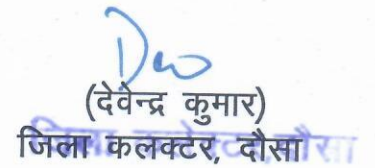 (देवेन्द्र कुमार)
जिला कलक्टर, दौसा